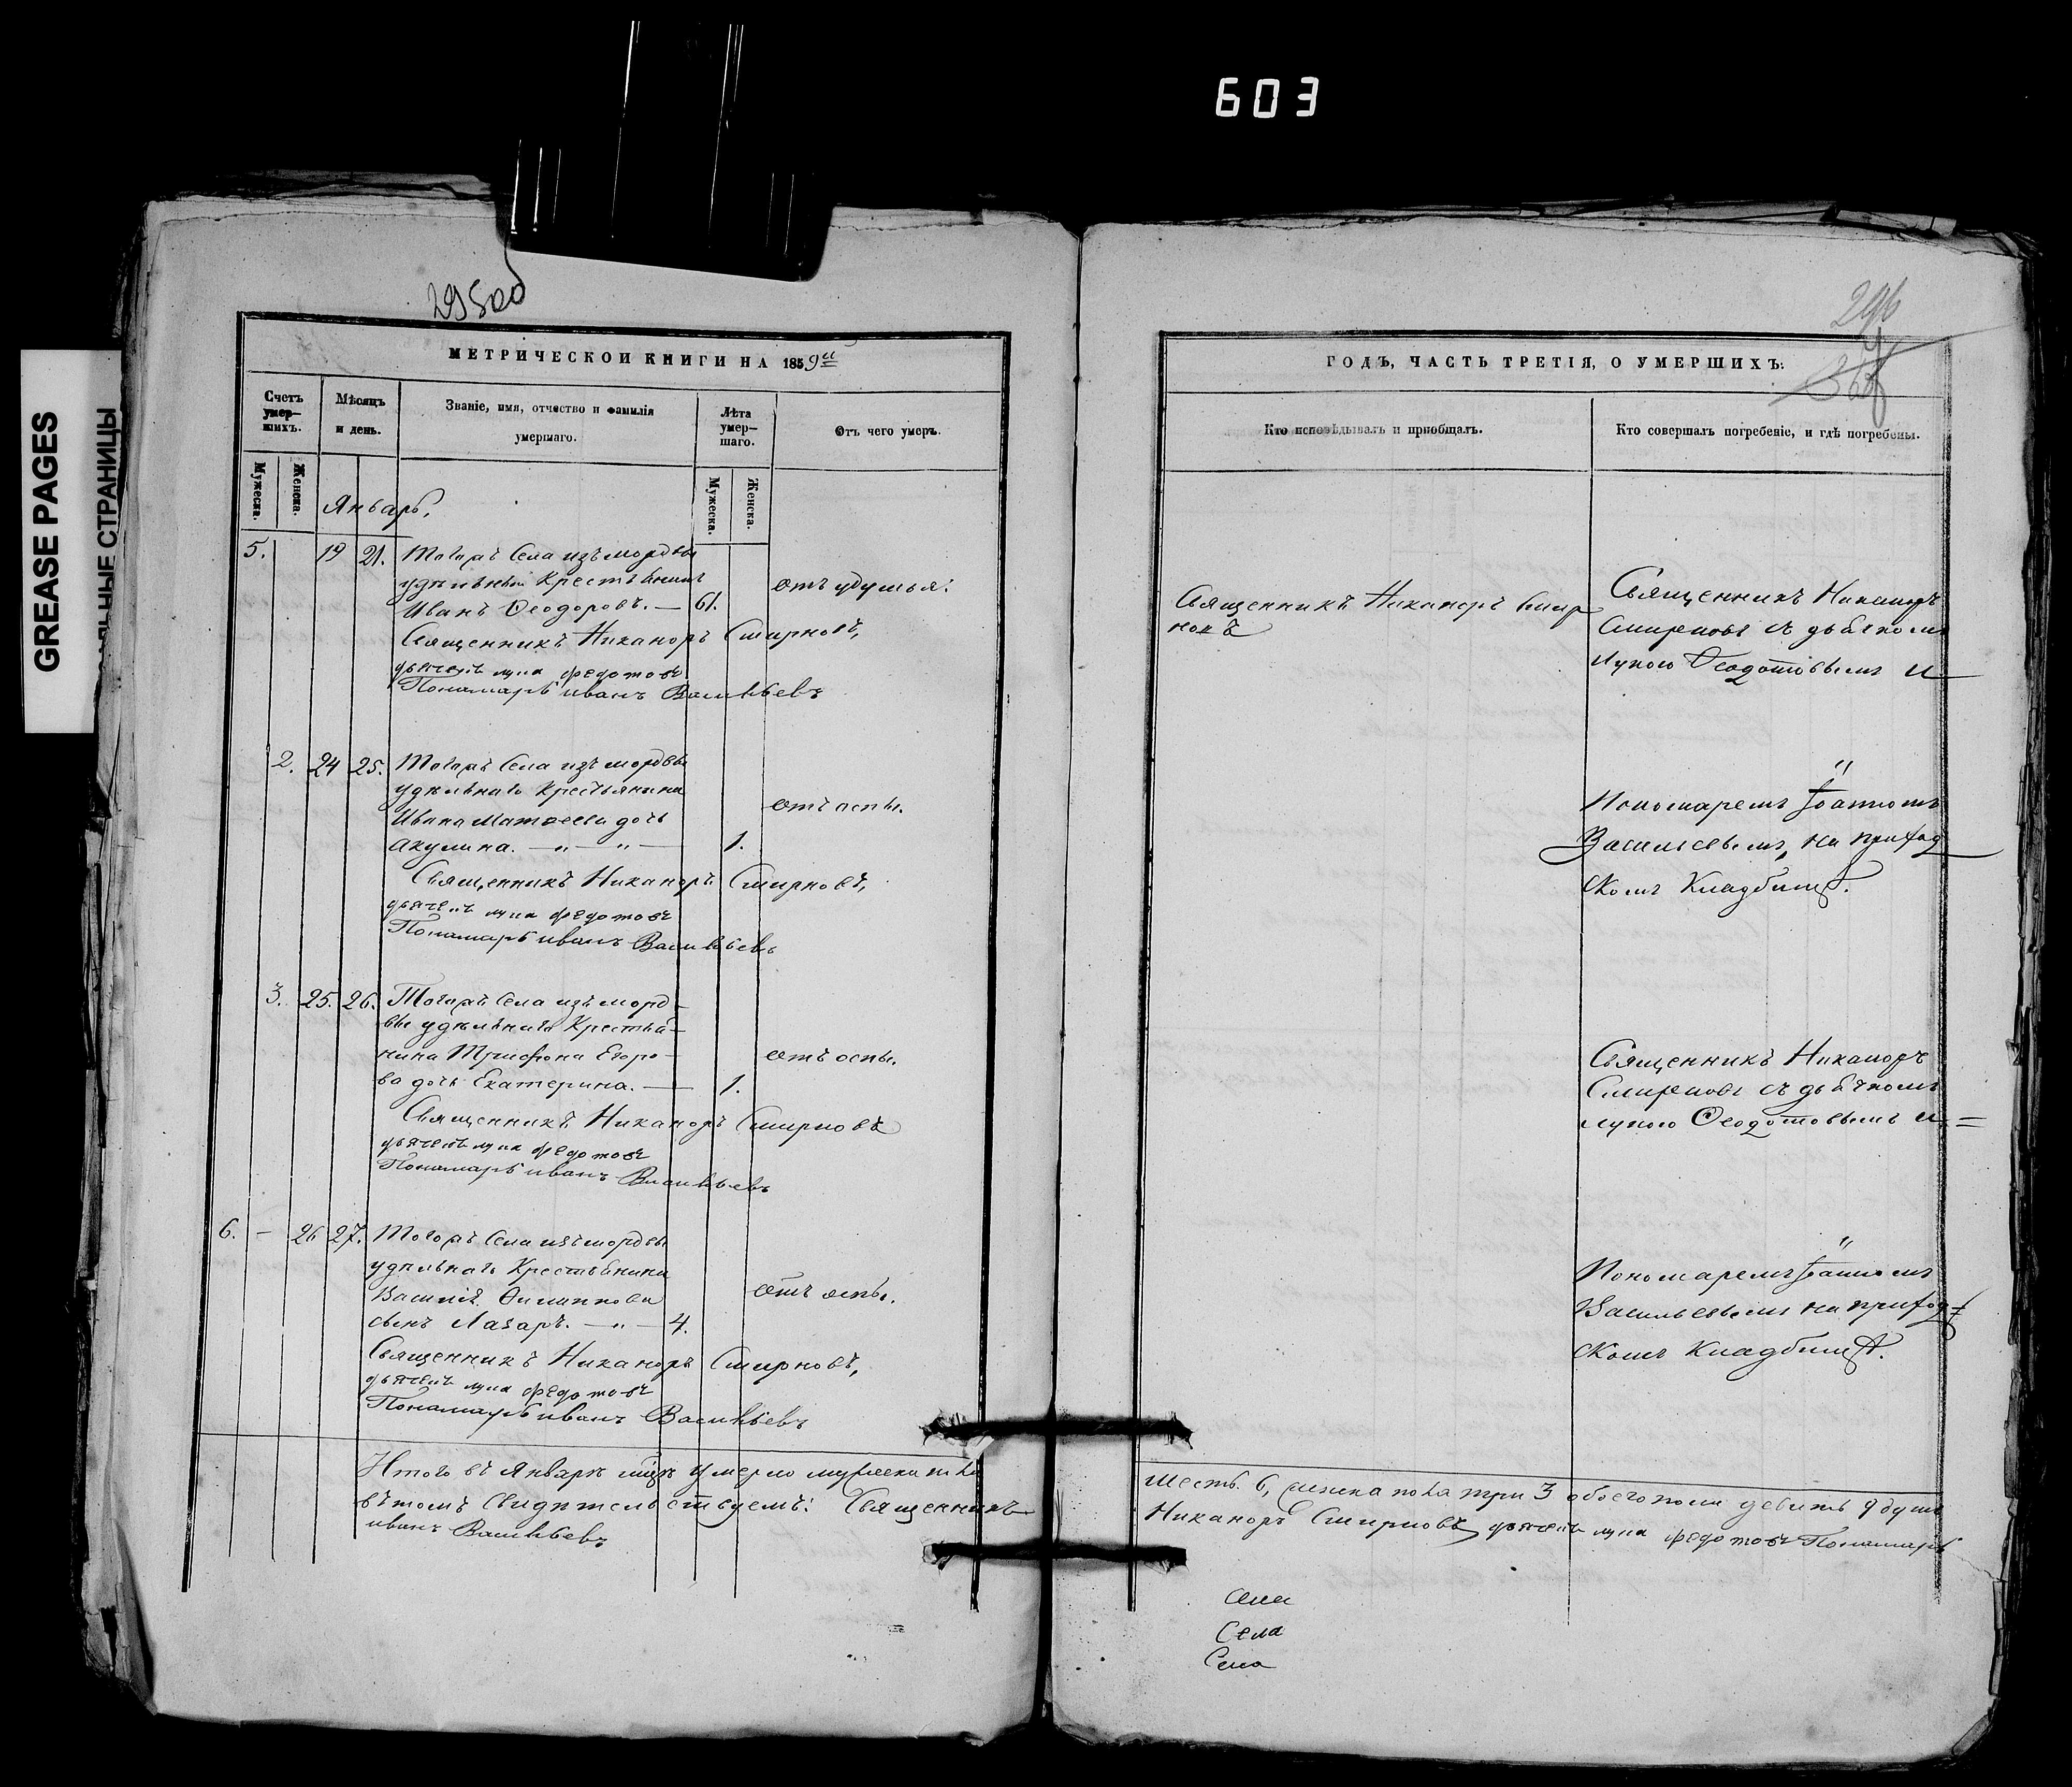 603
GREASE PAGES
СТРАНИЦЫ
295об
296
МЕТРИЧЕСКОЙ КНИГИ НА 1859й
Счетъ умер—шихъ.
Мѣсяцъ и день.
Званіе, имя, отчество и фамилія умершаго.
Лѣта умер—шаго.
Отъ чего умеръ.
Мужеска.
Женска.
Январь.
Мужеска.
Женска.
5. 19 21. Тогожъ Села изъ мордвы
удѣльный Крестьянинъ
Иванъ Ѳеодоровъ. — 61.
отъ удушья.
Священникъ Никаноръ Смирновъ,
дьячекъ лука федотовъ
Пономарь иванъ Васильевъ
2. 24 25. Тогожъ Села изъ мордвы
удѣльнаго Крестьянина
Ивана Матвеева дочь
Акулина. — „ — „ — 1.
отъ оспы.
Священникъ Никаноръ Смирновъ,
дьячекъ лука федотовъ
Пономарь иванъ Васильевъ
3. 25. 26. Тогожъ Села изъ морд—
вы удѣльнаго Крестья—
нина Трифона Егоро—
ва дочь Екатерина. — 1.
отъ оспы.
Священникъ Никаноръ Смирновъ
дьячекъ лука федотовъ
Пономарь иванъ Васильевъ
6. — 26 27. Тогожъ Села изъ мордвы
удѣльнаго Крестьянина
Василія Филиппова
сынъ Лазарь. — „ — 4.
отъ оспы.
Священникъ Никаноръ Смирновъ,
дьячекъ лука федотовъ
Пономарь иванъ Васильевъ
Итого въ Январѣ мцѣ умерло мужеска пола
въ томъ Свидѣтельствуемъ: Священникъ
иванъ Васильевъ
ГОДЪ, ЧАСТЬ ТРЕТІЯ, О УМЕРШИХЪ.
Кто исповѣдывалъ и пріобщалъ.
Кто совершалъ погребеніе, и гдѣ погребены.
Священникъ Никаноръ Смир
новъ
Священникъ Никаноръ
Смирновъ съ дьячкомъ
Лукою Ѳеодотовымъ и
Пономаремъ Іоанномъ
Васильевымъ, на приход
скомъ Кладбищѣ.
Священникъ Никаноръ
Смирновъ съ дьячкомъ
лукою Ѳеодотовымъ и =
Пономаремъ Іоанномъ
Васильевымъ на приход=
скомъ Кладбищѣ.
шесть 6, женска пола три 3 обоего пола девять 9 душъ
Никаноръ Смирновъ, дьячекъ лука федотовъ Пономарь
Села
Села
Села